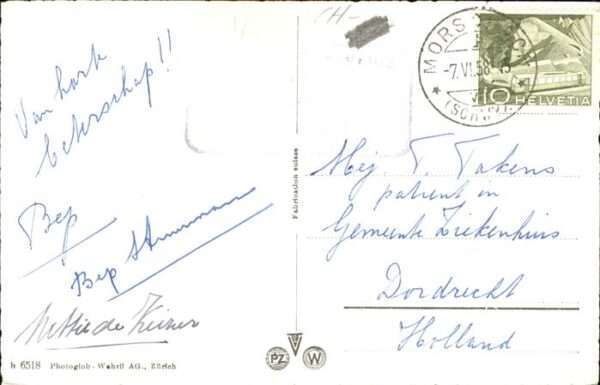 Van harte
beterschap!!
Bep
Bep
Nettie de
h 6518 Photoglob-Wehrli AG., Zürich
Fabrication suisse
PZ W
CH-
MORSCHACH
-7.VI.58
(SCHWYZ)
10 HELVETIA
Mej. T. Takens
patient in
Gemeente Ziekenhuis
Dordrecht
Holland